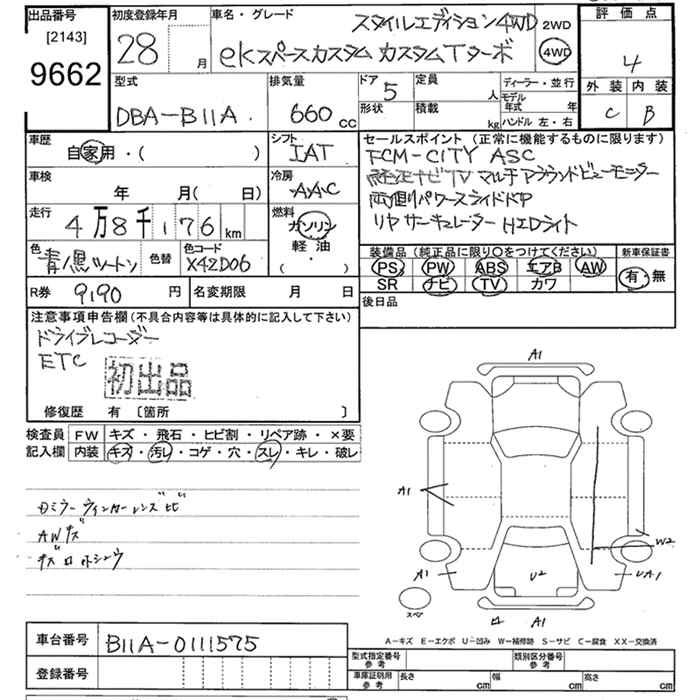 出品番号 初度登録年月 車名・グレード スタイルエディション4WD 2WD 評価点
[2143] 28 月 eKスペースカスタム カスタムTターボ 4WD 4
9662 型式 排気量 ドア 5 定員 人 ディーラー・並行 外装 内装
DBA-B11A 660 cc 形状 積載 kg モデル年式 年 C B
ハンドル 左・右
車歴 自家用・( ) シフト IAT セールスポイント (正常に機能するものに限ります)
FCM-CITY ASC
車検 年 月( 日) 冷房 AAC 純正ナビTV マルチアラウンドビューモニター
両側パワースライドドア
走行 4万8千176km 燃料 ガソリン リヤサーキュレーター HIDライト
軽油
( ・ )
色 青/黒ツートン 色替 色コード X42D06 装備品 (純正品に限り〇をつけてください) 新車保証書
PS PW ABS エアB AW 有・無
SR ナビ TV カワ
R券 9190 円 名変期限 月 日 後日品
注意事項申告欄 (不具合内容等は具体的に記入して下さい)
ドライブレコーダー
ETC 初出品
修復歴 有 〔箇所 〕
検査員記入欄 FW キズ・飛石・ヒビ割・リペア跡・×要
内装 キズ・汚レ・コゲ・穴・スレ・キレ・破レ
ミラーウィンカーレンズヒビ
AWキズ
A1
A1
W2
A1 U2 UA1
スペア
A1
A-キズ E-エクボ U-凹み W-補修跡 S-サビ C-腐食 XX-交換済
車台番号 B11A-0111575
型式指定番号 参考 類別区分番号 参考
登録番号 車庫証明用 参考 長さ cm 幅 cm 高さ cm